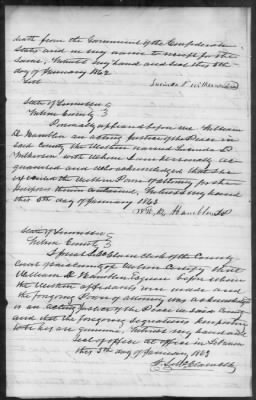 death from the Government of the Confederate
States and in my name to receipt for the
same. Witness my hand and seal this 5th
day of January 1863
Test
State of Tennessee
Wilson County
Personally appeared before me William
R Hamblen an acting Justice of the Peace in
said County the within named
with whom I am personally ac
quainted and who acknowledged that she
executed the within Power of attorney for the
purposes therein contained. Witness my hand
this 5th day of January 1863
Hamblen J P
State of Tennessee
Wilson County
I Clerk of the County
Court of Wilson Certify that
William R Hamblen Esquire before whom
the within affidavits were made and
the foregoing Power of attorney was acknowledged
is an acting Justice of the Peace in said County
and that the foregoing signatures purporting
to be his are genuine. Witness my hand and
Seal of office at office in Lebanon
this 5th day of January 1863